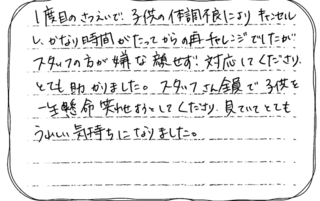 1度目のさつえいで、子供の体調不良により キャンセル
し、かなり時間がたってからの再チャレンジでしたが
スタッフの方が嫌な顔せず!対応してくださり、
とても助かりました。スタッフさん全員で子供を
一生懸命 笑わせようとしてくださり、見ていてとても
うれしい気持ちになりました。